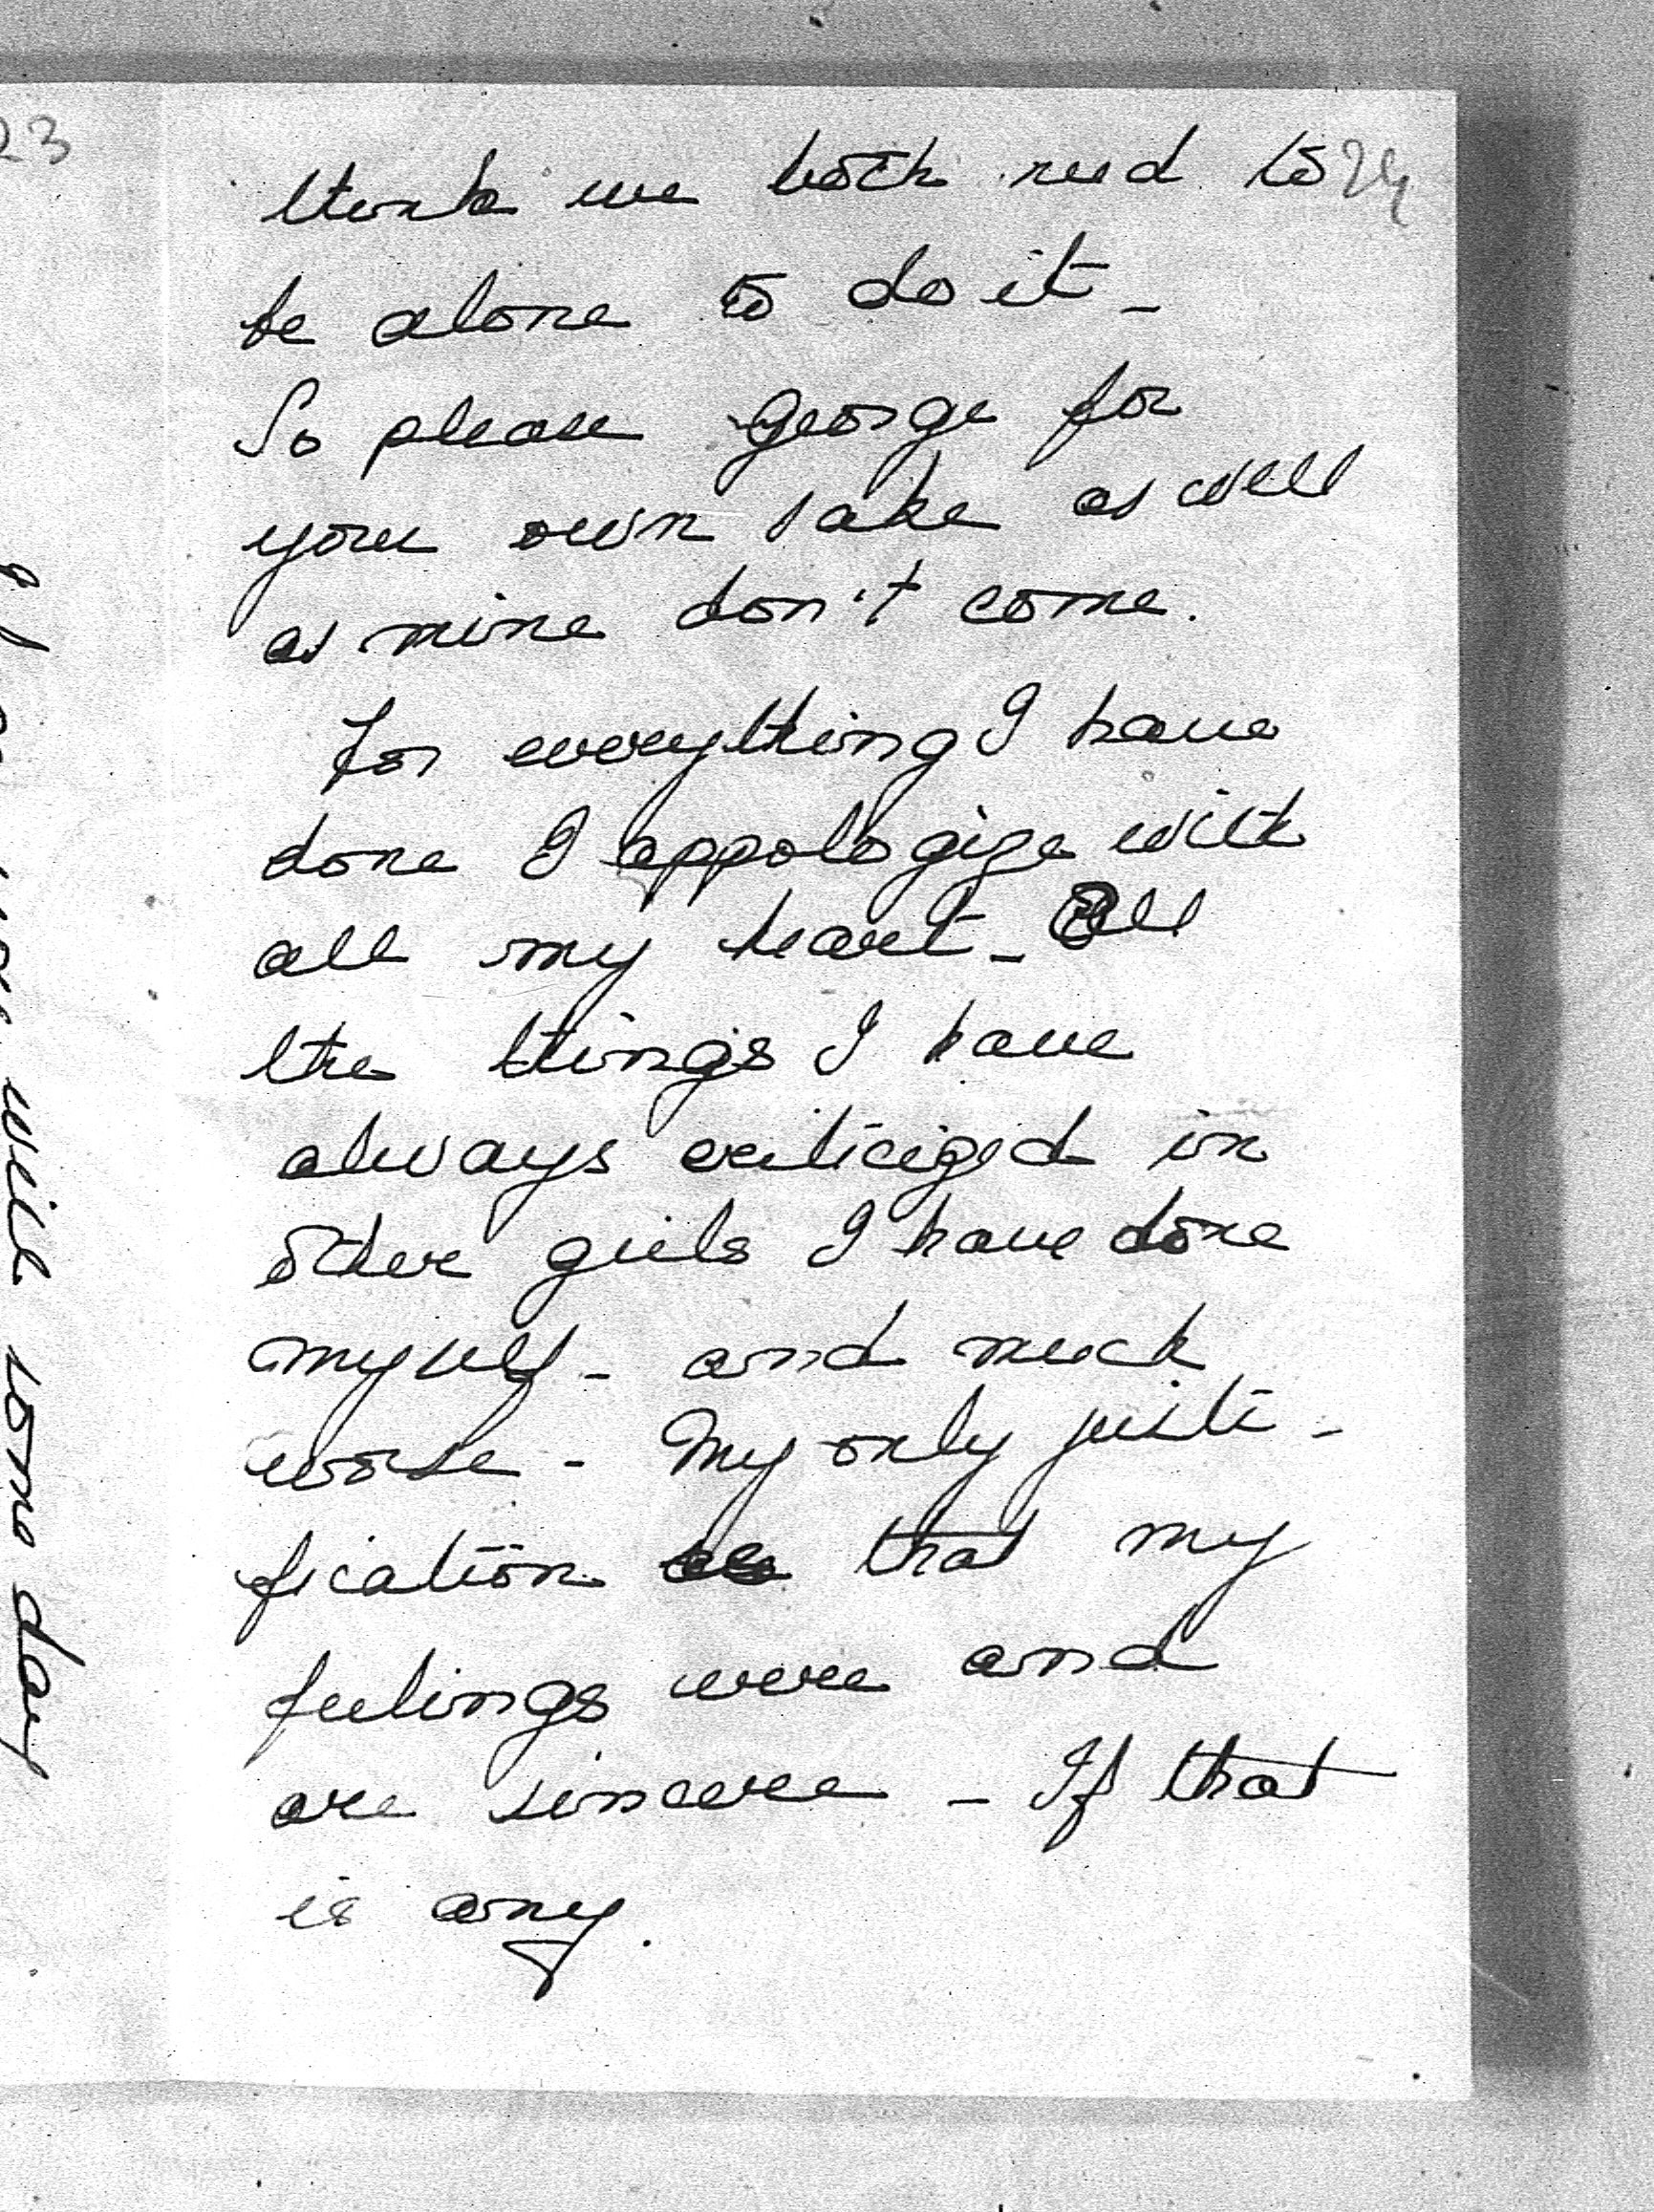 23
24
think we both need to
be alone to do it -
So please George for
your own sake as well
as mine don't come.
For everything I have
done I appologize with
all my heart - All
the things I have
always criticized in
other girls I have done
myself - and much
worse - My only justi-
fication is that my
feelings were and
are sincere - If that
is any.
will some day